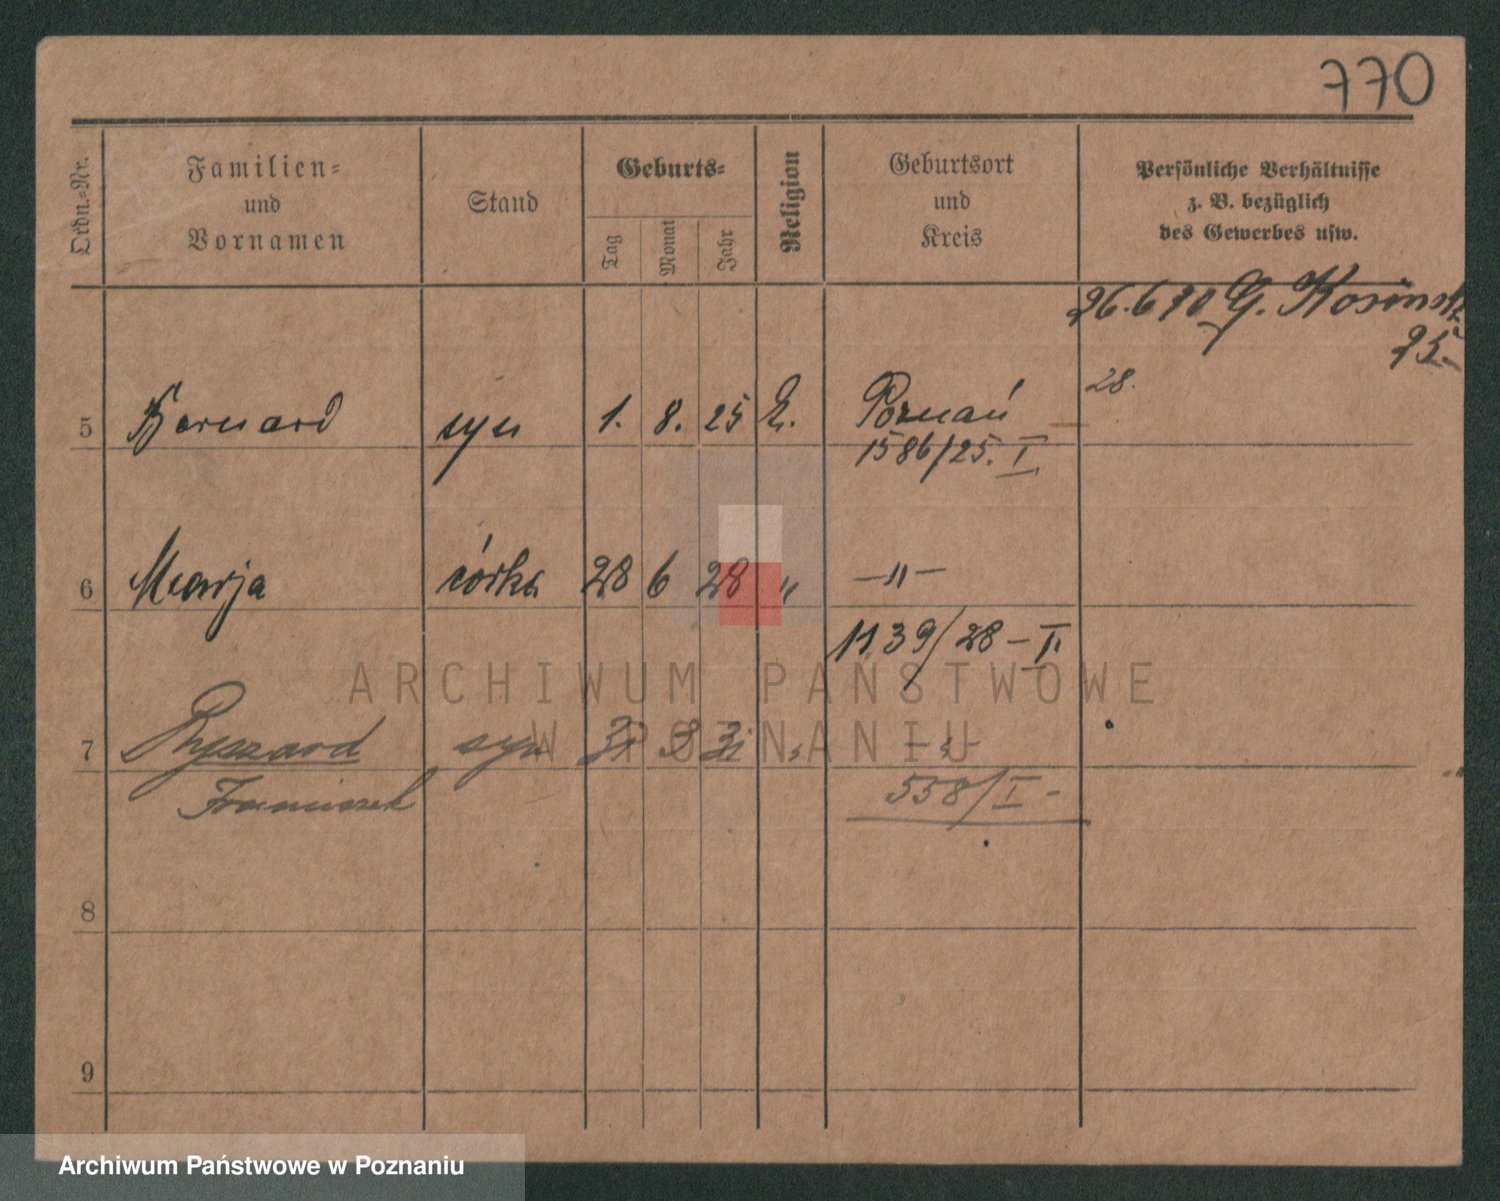 770
Ordn.-Nr.
Familien-
und
Vornamen
Stand
Geburts-
Tag
Monat
Jahr
Religion
Geburtsort
und
Kreis
Persönliche Verhältnisse
z. B. bezüglich
des Gewerbes usw.
G. Kosinsk
25.-
28.
5 Bernard syn 1. 8. 25 Poznań
1586/25. I.
6 Marja córka 28 6 28 " —"—
1139/28 – II
7 Ryszard syn
Franciszek 558/I -
8
9
ARCHIWUM PAŃSTWOWE
W POZNANIU
Archiwum Państwowe w Poznaniu